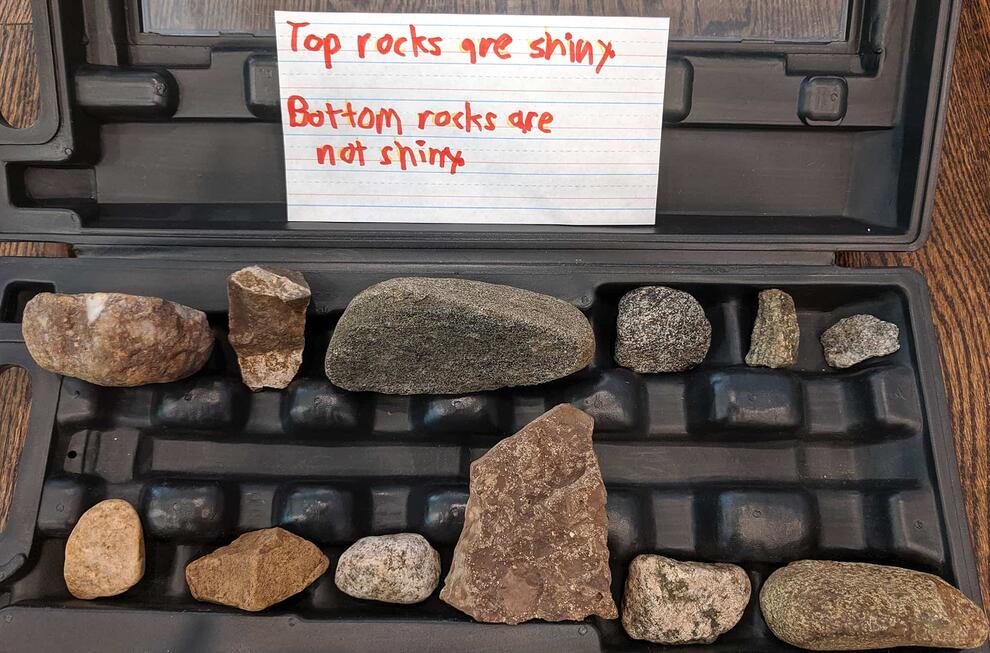 Top rocks are shiny.
Bottom rocks are
not shiny.